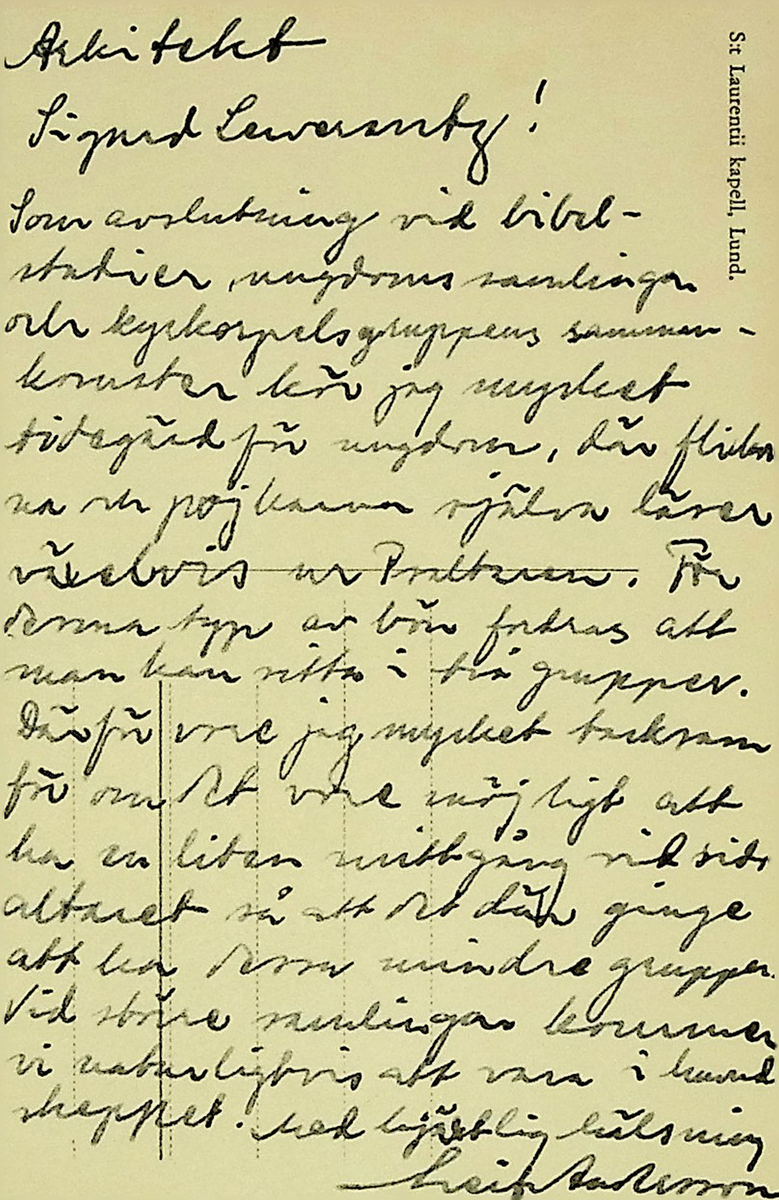 Arkitekt
Sigurd Lewerentz!
Som avslutning vid bibel-
studier, ungdomssamlingar
och kyrkospelsgruppens samman-
komster ber jag mycket
tidegärd för ungdom, där flickor
na och pojkarna själva läser
växelvis ur Psaltaren. För
denna typ av bön fordras att
man kan sitta i två grupper.
Därför vore jag mycket tacksam
för om det vore möjligt att
ha en liten mittgång vid sido
altaret så att det där ginge
att ha dessa mindre grupper.
Vid större samlingar kommer
vi naturligtvis att vara i huvud
skeppet. Med hjärtlig hälsning
Andersson
S:t Laurentii kapell, Lund.